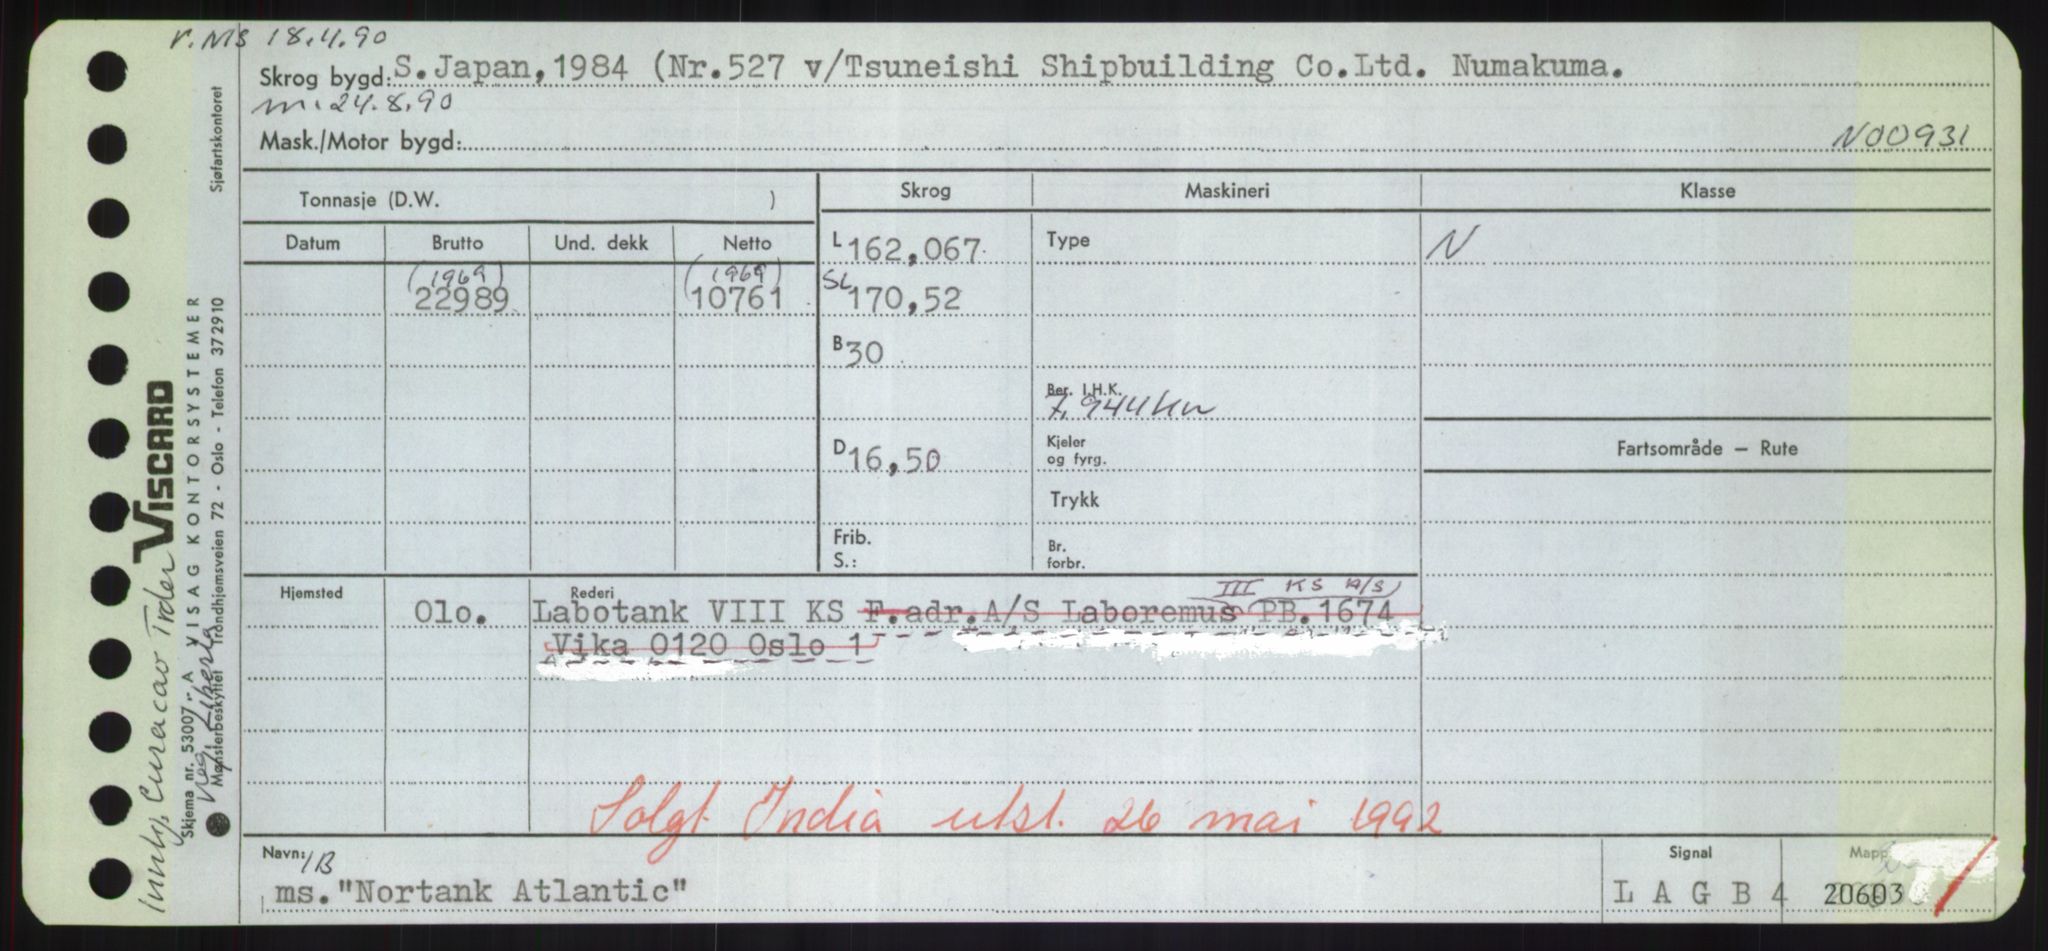 r. MS 18.4.90
Skrog bygd: S.Japan,1984 (Nr.527 v/Tsuneishi Shipbuilding Co.Ltd. Numakuma.
m. 24.8.90
Mask./Motor bygd:
N00931
Tonnasje (D.W. )
Skrog Maskineri Klasse
Datum Brutto Und. dekk Netto
L 162,067 Type N
(1969) (1969)
22989 10761
SL 170,52
B 30
Ber. I.H.K.
7.944 kw
D 16,50
Kjeler
og fyrg.
Fartsområde — Rute
Trykk
Frib.
S.:
Br.
forbr.
Hjemsted Rederi III KS A/S)
Olo. Labotank VIII KS F.adr.A/S Laboremus PB.1674
Vika 0120 Oslo 1
Solgt India utst. 26 mai 1992
Navn: 1B
ms. "Nortank Atlantic"
Signal
L A G B 4
Mapp
20603
Sjøfartskontoret
VISCARD
VISAG KONTORSYSTEMER
Skjema nr. 53007 - A
Mønsterbeskyttet Trondhjemsveien 72 - Oslo - Telefon 372910
Curacao Trder
Liberia